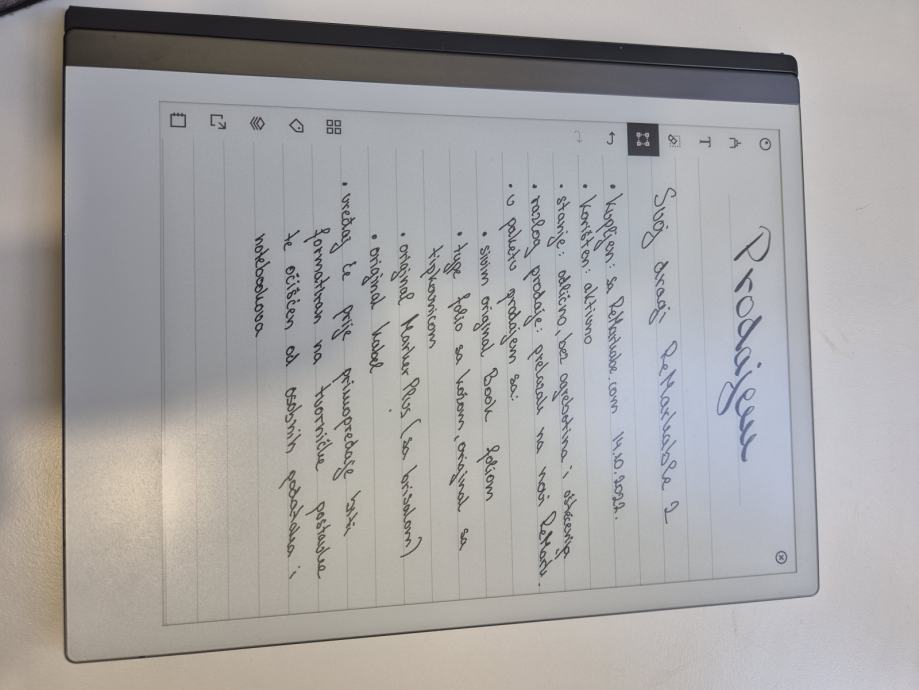 Prodajem
Svoj dragi ReMarkable 2
• kupljen: sa ReMarkable.com 14.10.2022.
• korišten: aktivno
• stanje: odlično, bez ogrebotina i oštećenja
• razlog prodaje: prelazak na novi ReMark.
• u paketu prodajem sa:
• sivim original Book foliom
• type folio sa kožom, original sa
tipkovnicom
• original Marker Plus (sa brisalom)
• original kabel
• uređaj će prije primopredaje biti
formatiran na tvorničke postavke
te očišćen od osobnih podataka i
notebookova